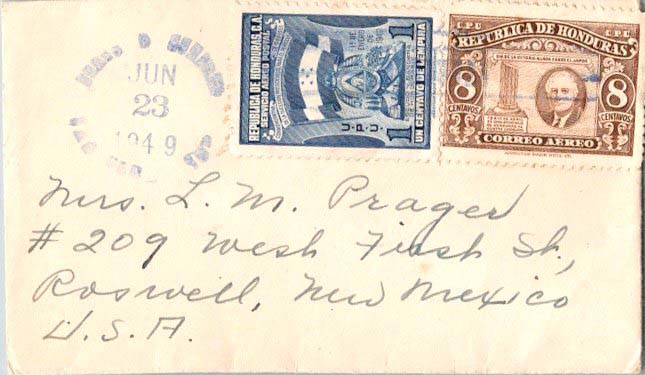 JUN
23
1949
REPUBLICA DE HONDURAS, C.A.
SERVICIO AEREO POSTAL
U.P.U.
1 1
UN CENTAVO DE LEMPIRA
C.P.U. C.P.U.
REPUBLICA DE HONDURAS
8 8
CENTAVOS CENTAVOS
CORREO AÉREO
Mrs. L. M. Prager
# 209 West First St.,
Roswell, New Mexico
U.S.A.